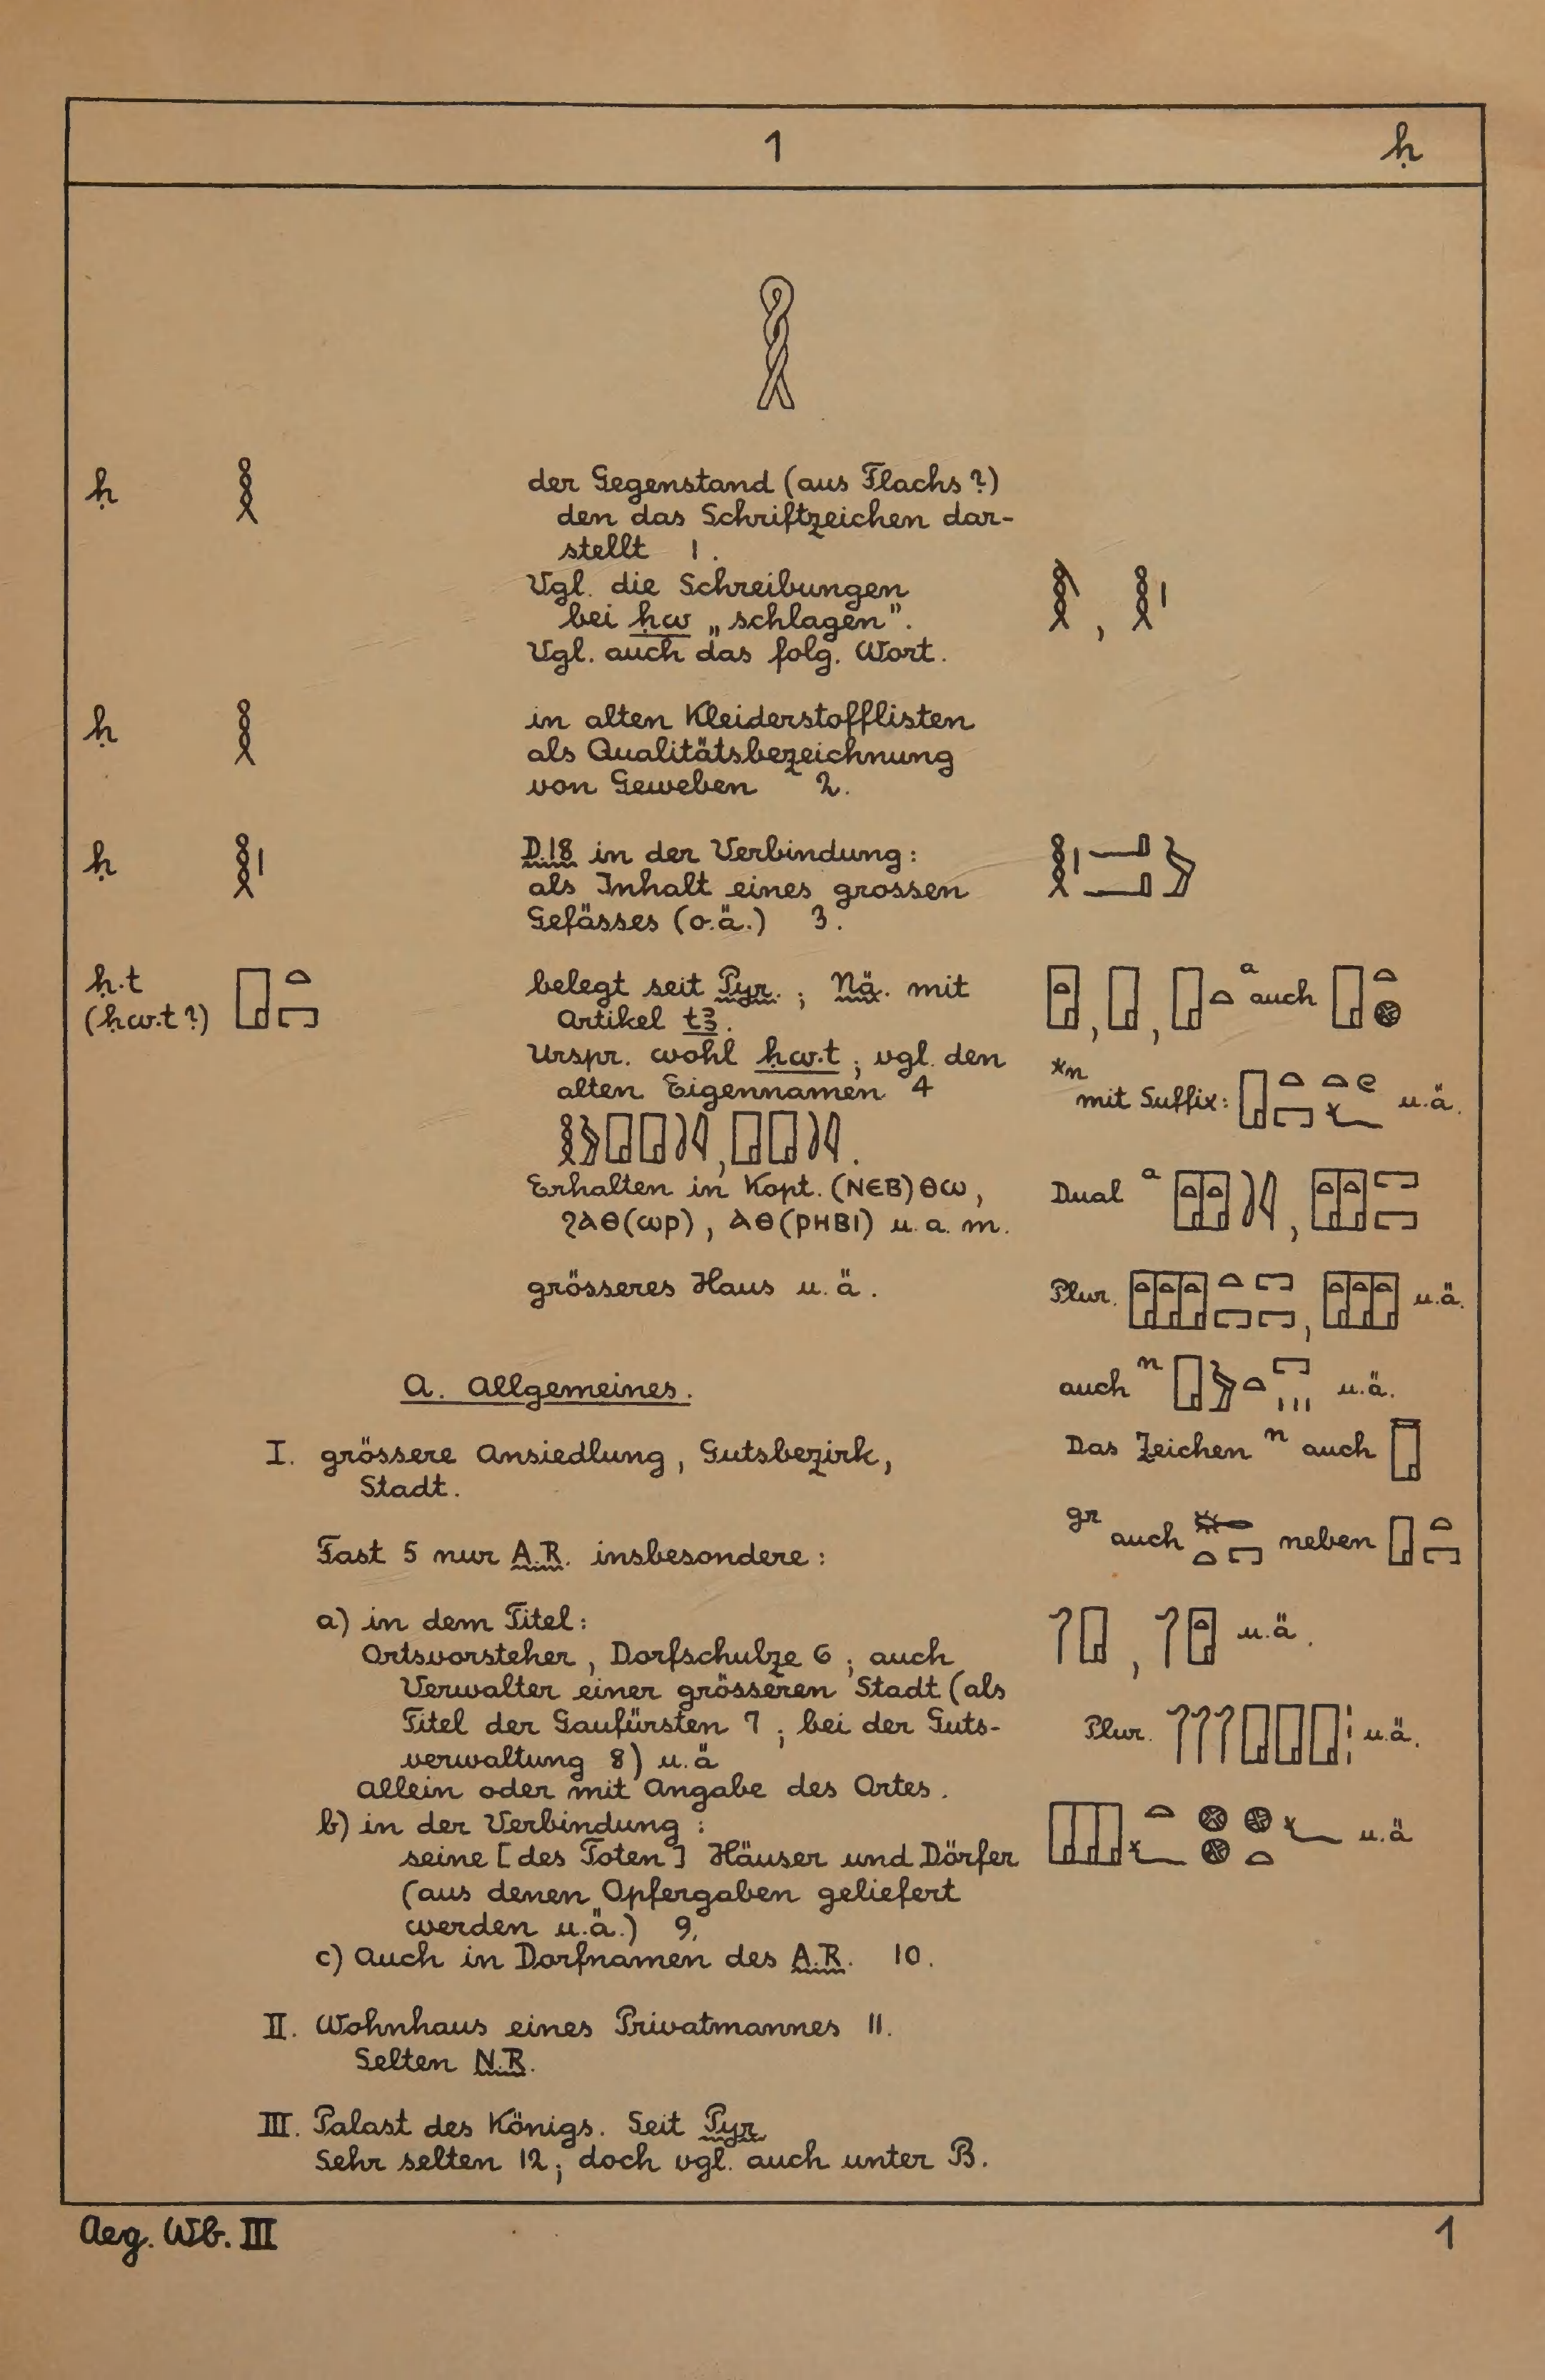 1 ḥ
𓎛
ḥ 𓎛 der Gegenstand (aus Flachs?)
den das Schriftzeichen dar-
stellt 1.
Vgl. die Schreibungen
bei ḥw „schlagen".
Vgl. auch das folg. Wort.
ḥ 𓎛 in alten Kleiderstofflisten
als Qualitätsbezeichnung
von Geweben 2.
ḥ 𓎛𓏤 D.18 in der Verbindung:
als Inhalt eines grossen
Gefässes (o.ä.) 3.
ḥ.t 𓉗𓏏𓉐 belegt seit Pyr.; Nä. mit
(ḥw.t?) Artikel tꜣ. auch
Urspr. wohl ḥw.t; vgl. den
alten Eigennamen 4
*n mit Suffix: u.ä.
Erhalten in Kopt. (ⲚⲈⲂ)ⲐⲰ,
ϨⲀⲐ(ⲰⲢ), ⲀⲐ(ⲢⲎⲂⲒ) u.a.m.
Dual a
grösseres Haus u.ä.
Plur. u.ä.
A. Allgemeines.
auch n u.ä.
I. grössere Ansiedlung, Gutsbezirk,
Stadt.
Das Zeichen n auch
Fast 5 nur A.R. insbesondere:
gr auch neben 𓉗𓏏𓉐
a) in dem Titel:
Ortsvorsteher, Dorfschulze 6; auch
Verwalter einer grösseren Stadt (als
Titel der Gaufürsten 7; bei der Guts-
verwaltung 8) u.ä
Allein oder mit Angabe des Ortes.
u.ä.
Plur. u.ä.
b) in der Verbindung:
seine [des Toten] Häuser und Dörfer
(aus denen Opfergaben geliefert
werden u.ä.) 9.
u.ä
c) Auch in Dorfnamen des A.R. 10.
II. Wohnhaus eines Privatmannes 11.
Selten N.R.
III. Palast des Königs. Seit Pyr.
Sehr selten 12; doch vgl. auch unter B.
Aeg. Wb. III 1